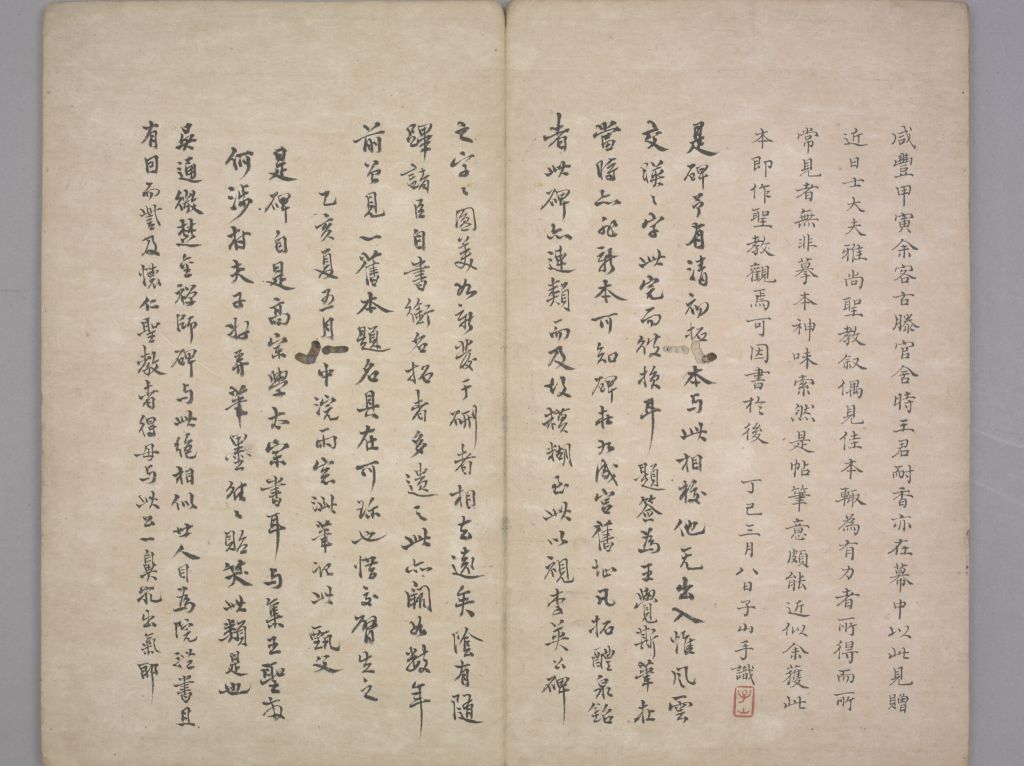 咸豐甲寅余客古滕官舍時王君耐香亦在幕中以此見贈
近日士大夫雅尚聖教叙偶見佳本輙為有力者所得而所
常見者無非摹本神味索然是帖筆意頗能近似余獲此
本即作聖教觀焉可因書於後 丁巳三月八日子山手識
子山
是碑予有清初拓本与此相挍他无出入惟风雲
交 字此完而彼损耳 題签為王覺斯筆在
當時亦非新本可知碑在九成宫舊址凡拓醴泉銘
者此碑亦連類而及故模糊至此以視李英公碑
之字〻圆美如新發于硎者相去遠矣陰有随
蹕諸臣自書銜名拓者多遗之此亦闕如数年
前曾見一舊本題名具在可珎也惜交臂失之
乙亥夏五月中浣雨窓泚筆记此 甄父
是碑自是高宗學太宗書耳 与集王聖教
何涉村夫子好弄筆墨往〻貽笑此類是也
吳通微楚金禅師碑与此绝相似廿人目為院體書且
有目而詈及懷仁聖教者得毋与此公一鼻孔出氣耶